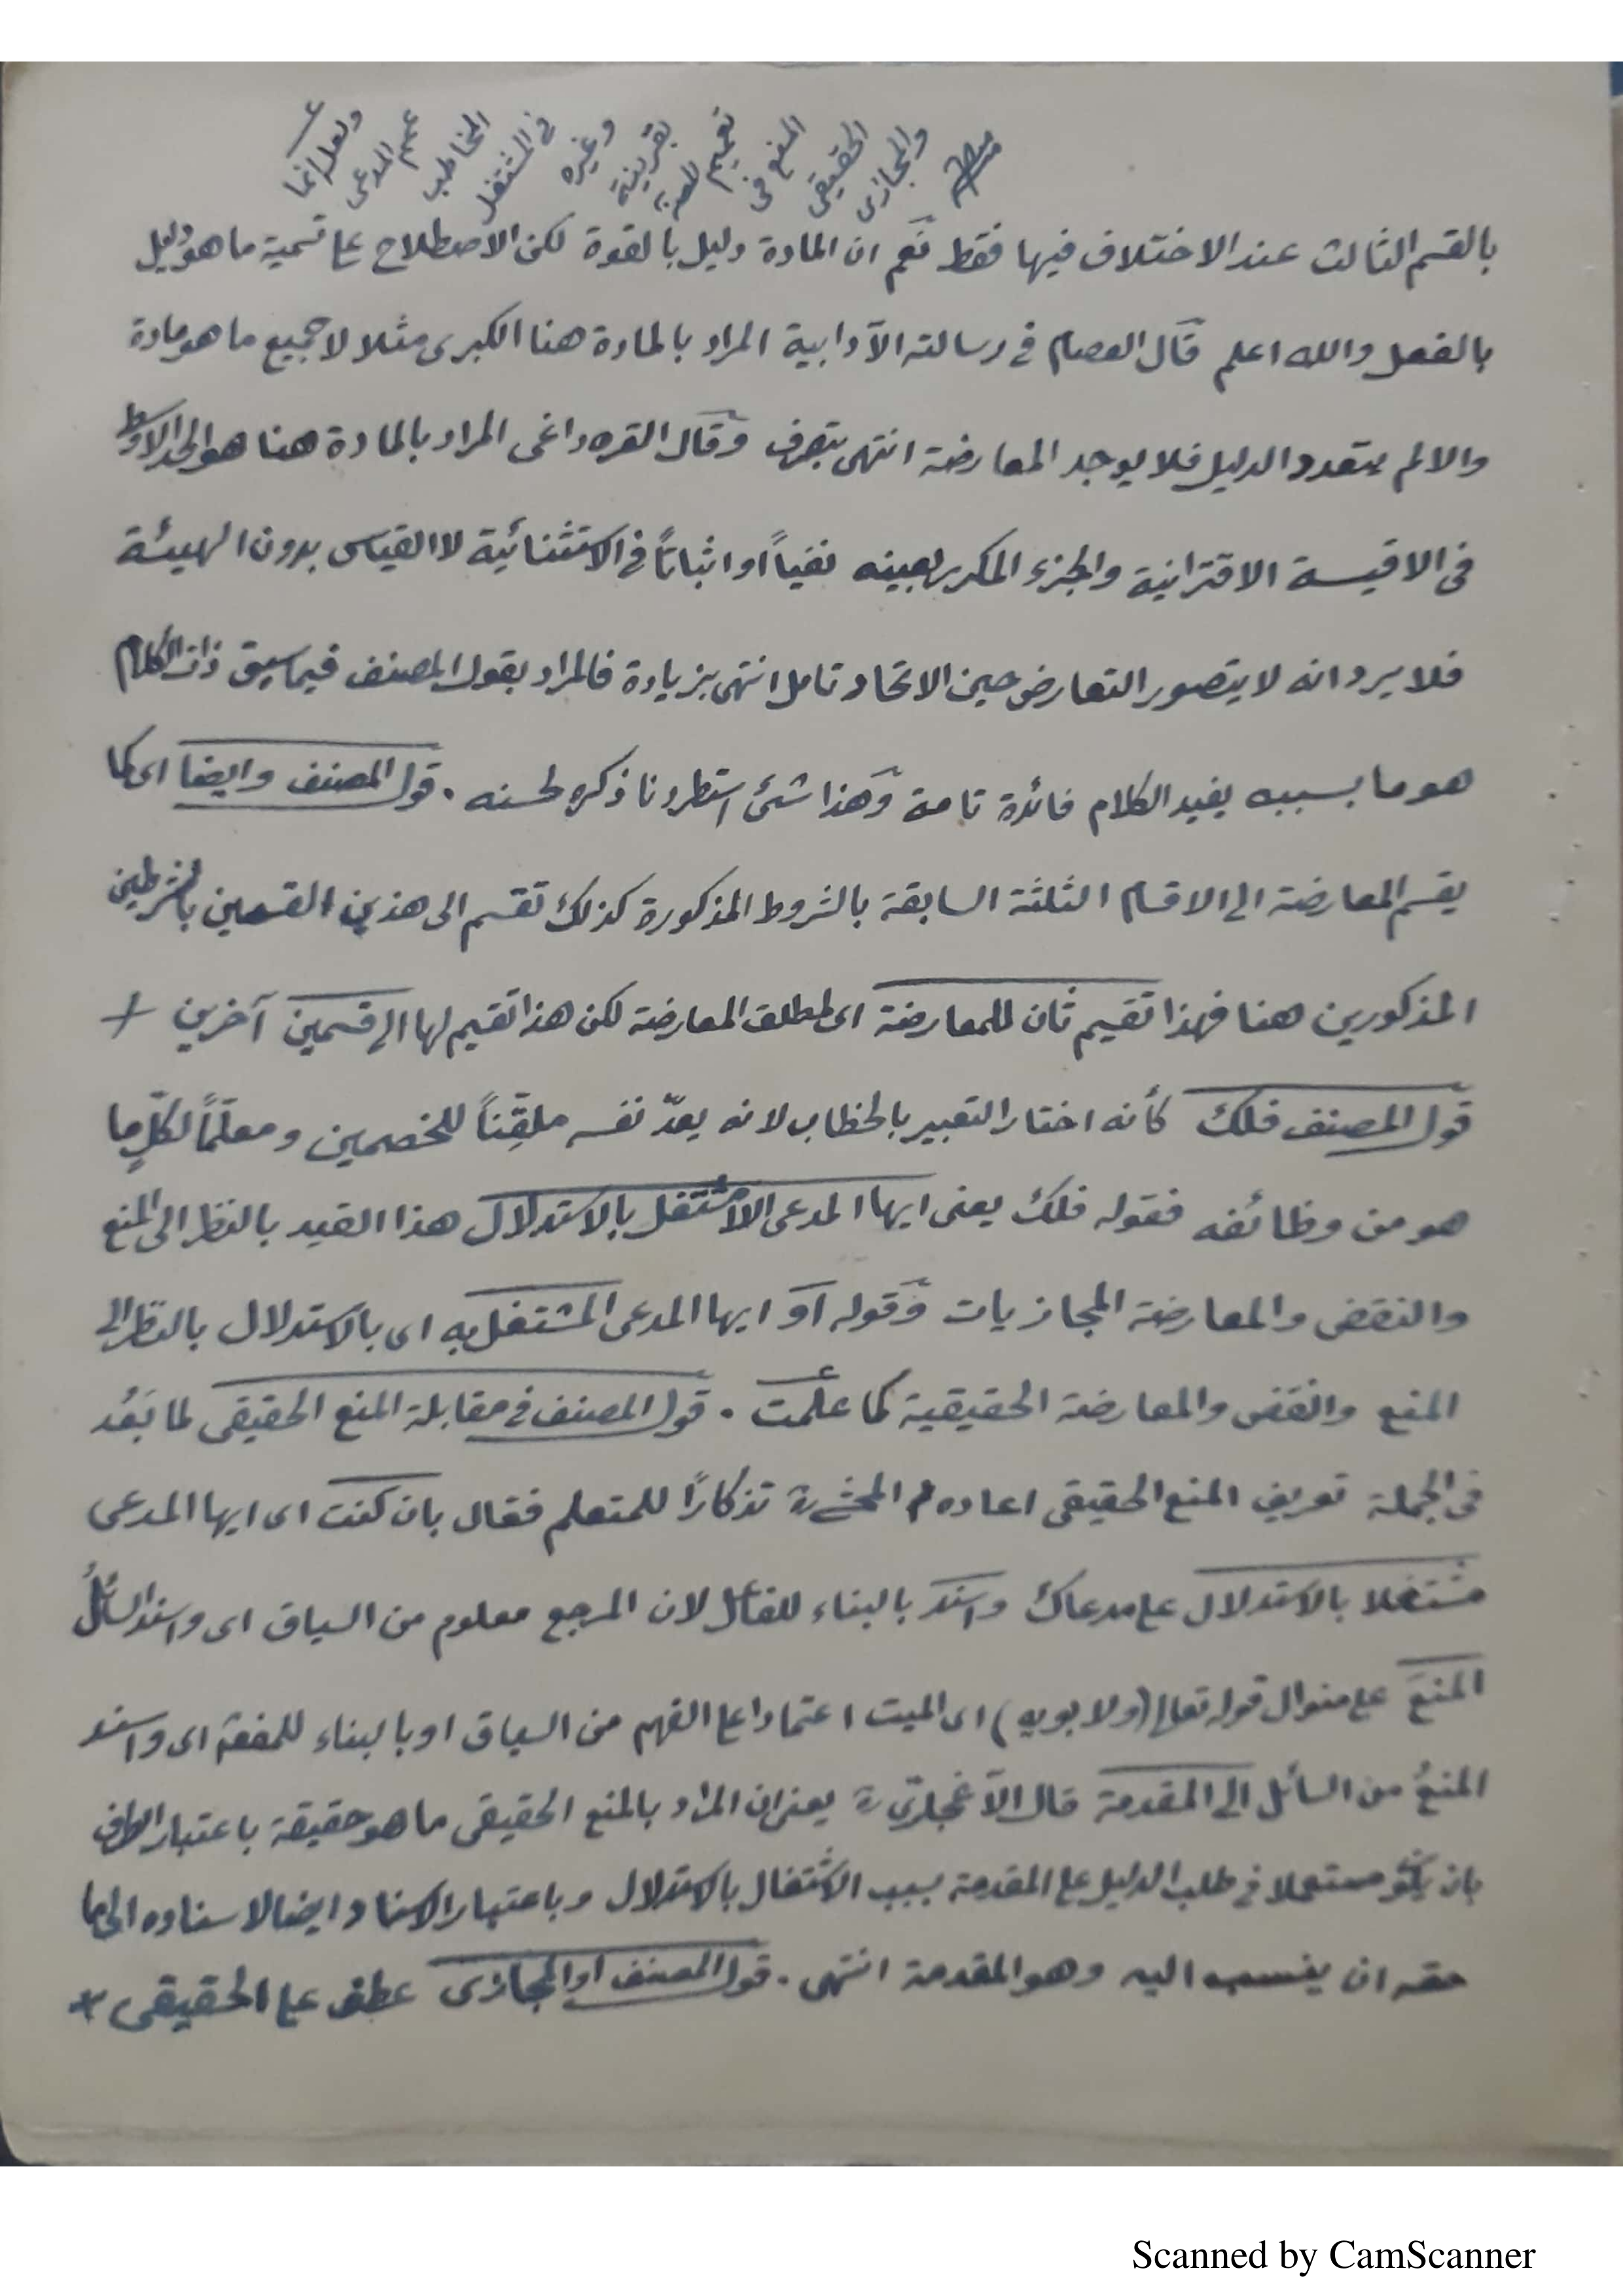 ولعل انما
عمم المدعى
المخاطب
فى المشتغل
وغيره
بقرينة
تعميم
المنع فى
الحقيقى
والمجازى
بالقسم الثالث عند الاختلاف فيها فقط نعم ان المادة دليل بالقوة لكن الاصطلاح على تسمية ما هو دليل
بالفعل والله اعلم قال العصام فى رسالته الآدابية المراد بالمادة هنا الكبرى مثلا لا جميع ما هو مادة
والا لم يتعدد الدليل فلا يوجد المعارضة انتهى بتصرف وقال القره داغى المراد بالمادة هنا هو الحد الاوسط
فى الاقيسة الاقترانية والجزء المكرر بعينه نفياً او اثباتاً فى الاستثنائية لا القياس بدون الهيئة
فلا يرد انه لا يتصور التعارض حين الاتحاد تامل انتهى بزيادة فالمراد بقول المصنف فيما سبق ذات الكلام
هو ما بسببه يفيد الكلام فائدة تامة وهذا شئ استطردنا ذكره لحسنه . قول المصنف وايضا اى كما
يقسم المعارضة الى الاقسام الثلثة السابقة بالشروط المذكورة كذلك تقسم الى هذين القسمين بالشرطين
المذكورين هنا فهذا تقسيم ثان للمعارضة اى لمطلق المعارضة لكن هذا تقسيم لها الى قسمين آخرين +
قول المصنف فلك كأنه اختار التعبير بالخطاب لانه يعدّ نفسه ملقِّناً للخصمين ومعلّماً لكلٍّ ما
هو من وظائفه فقوله فلك يعنى ايها المدعى اللامشتغل بالاستدلال هذا القيد بالنظر الى المنع
والنقض والمعارضة المجازيات وقوله او ايها المدعى المشتغل به اى بالاستدلال بالنظر الى
المنع والنقض والمعارضة الحقيقية كما علمت . قول المصنف فى مقابلة المنع الحقيقى لما بَعُد
فى الجملة تعريف المنع الحقيقى اعاده المحشى رح تذكارًا للمتعلم فقال بان كنت اى ايها المدعى
مشتغلا بالاستدلال على مدعاك واسند بالبناء للفاعل لان المرجع معلوم من السياق اى واسند السائلُ
المنعَ على منوال قوله تعالى (ولابويه) اى الميت اعتمادا على الفهم من السياق او بالبناء للمفعول اى واسند
المنعُ من السائل الى المقدمة قال الآغجلرىّ رح يعنى ان المراد بالمنع الحقيقى ما هو حقيقة باعتبار الطرف
بان يكون مستعملا فى طلب الدليل على المقدمة بسبب الاشتغال بالاستدلال وباعتبار الاسناد ايضا لاسناده الى ما
حقه ان ينسب اليه وهو المقدمة انتهى . قول المصنف او المجازى عطف على الحقيقى +
Scanned by CamScanner